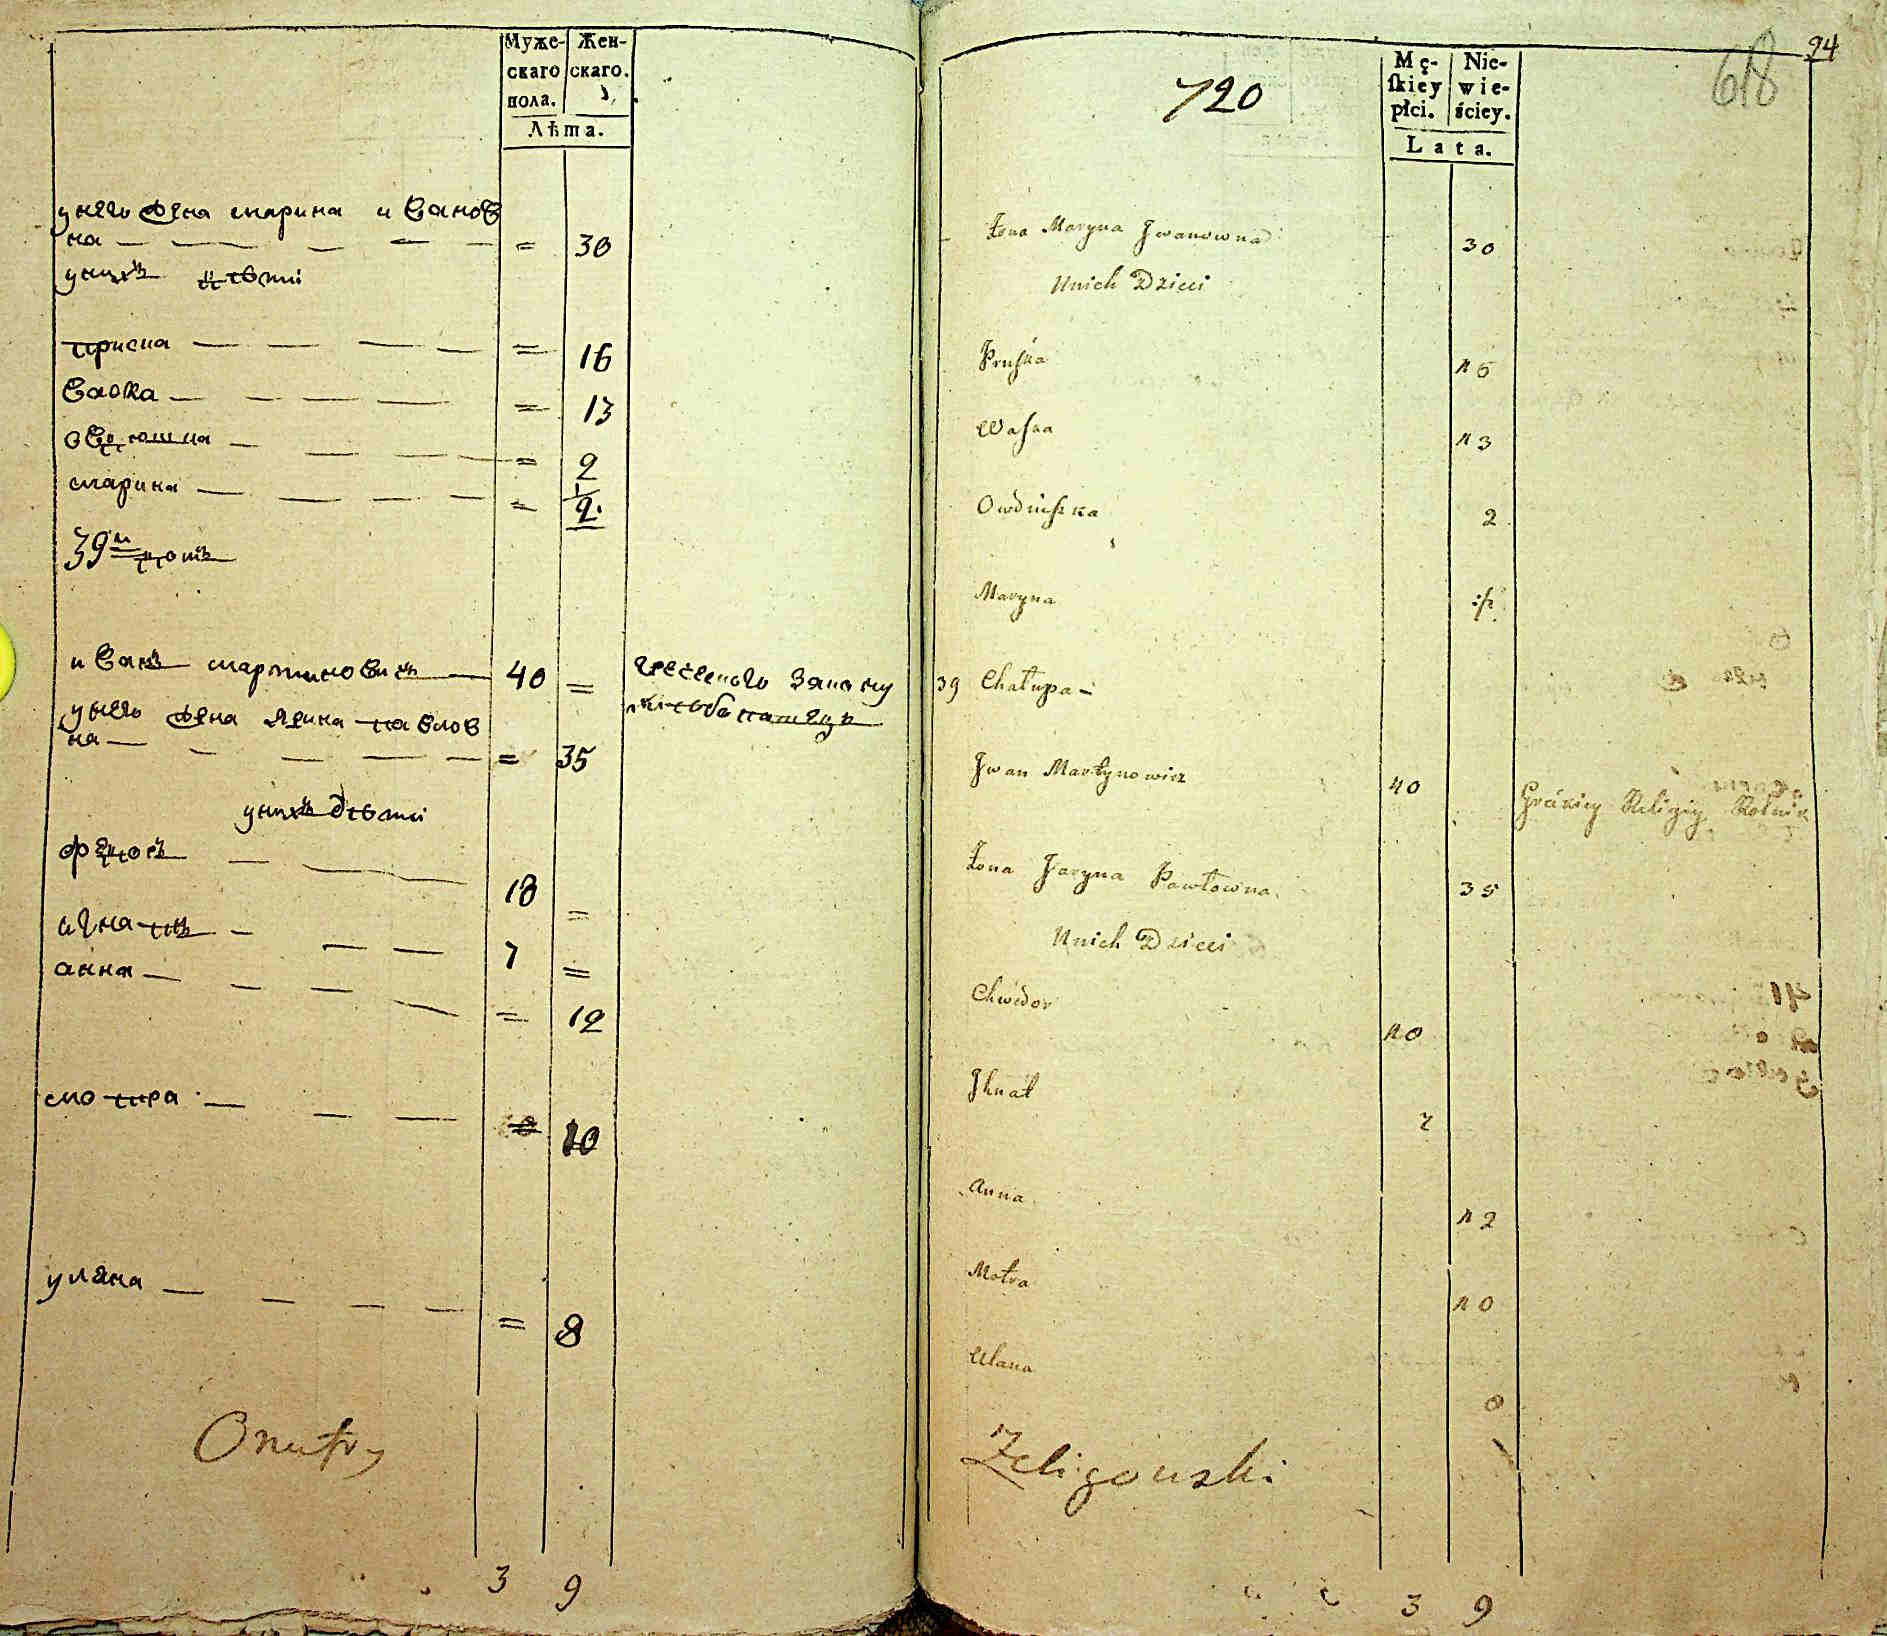 Муже- Жен-
скаго скаго.
пола.
Лѣта.
унего жена марина иванов
на = 30
унихъ дѣти
приска = 16
васка = 13
овдюшка = 2
марина = 1/2
39й домъ
иванъ мартиновичъ 40 = греческого закону
унего жена ярина павлов
на = 35
унихъ дѣти
федоръ 18 =
игнатъ 7 =
анна = 12
мотра = 10
уляна = 8
Onufry
3 9
94
618
720
Mę- Nie-
skiey wie-
płci. ściey.
Lata.
Żona Maryna Jwanowna 30
Unich Dzieci
Pruska 16
Waska 13
Owdiuszka 2
Maryna 1/2
39 Chałupa
Jwan Martynowicz 40 Gréckiey Religiy Rolnik
Żona Jaryna Pawłowna 35
Unich Dzieci
Chwedor 18
Jhnat 7
Anna 12
Motra 10
Ulana 8
Zeligowski
3 9